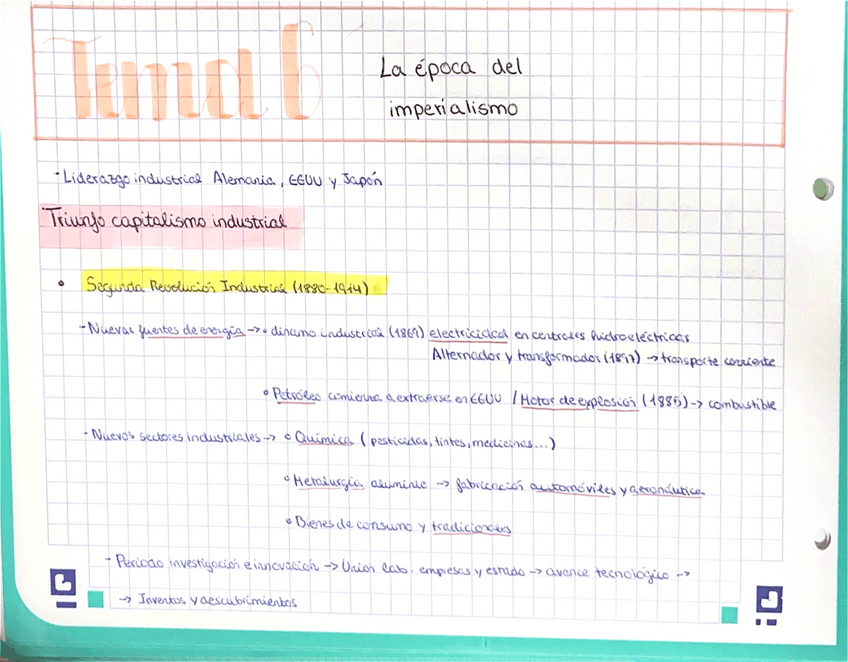 Tema 6
La época del
imperialismo
- Liderazgo industrial Alemania, EEUU y Japón
Triunfo capitalismo industrial
• Segunda Revolución Industrial (1880-1914)
- Nuevas fuentes de energía -> • dinamo industrial (1869) electricidad en centrales hidroeléctricas
Alternador y transformador (1897) -> transporte corriente
• Petróleo comienza a extraerse en EEUU / Motor de explosión (1885) -> combustible
- Nuevos sectores industriales -> • Química (pesticidas, tintes, medicinas...)
• Metalurgia aluminio -> fabricación automóviles y aeronáutica
• Bienes de consumo y tradicionales
- Periodo investigación e innovación -> Unión lab. empresas y estado -> avance tecnológico ->
-> Inventos y descubrimientos